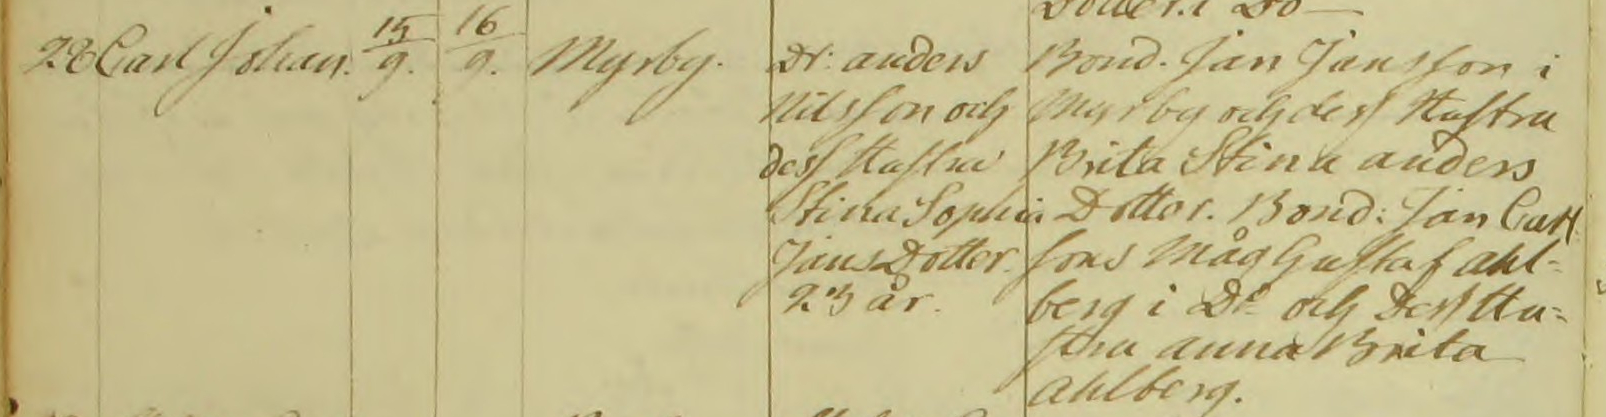 Dotter. i Do
28 Carl Johan. 15/9. 16/9. Myrby. Dr: anders Bond. Jan Jansson i
Nilsson och Myrby och dess Hustru
dess Hustru Brita Stina anders
Stina Sophia Dotter. Bond: Jan Carl
JansDotter. sons Måg Gustaf ahl-
23 år. berg i Do och Dess Hu-
stru anna Brita
ahlberg.